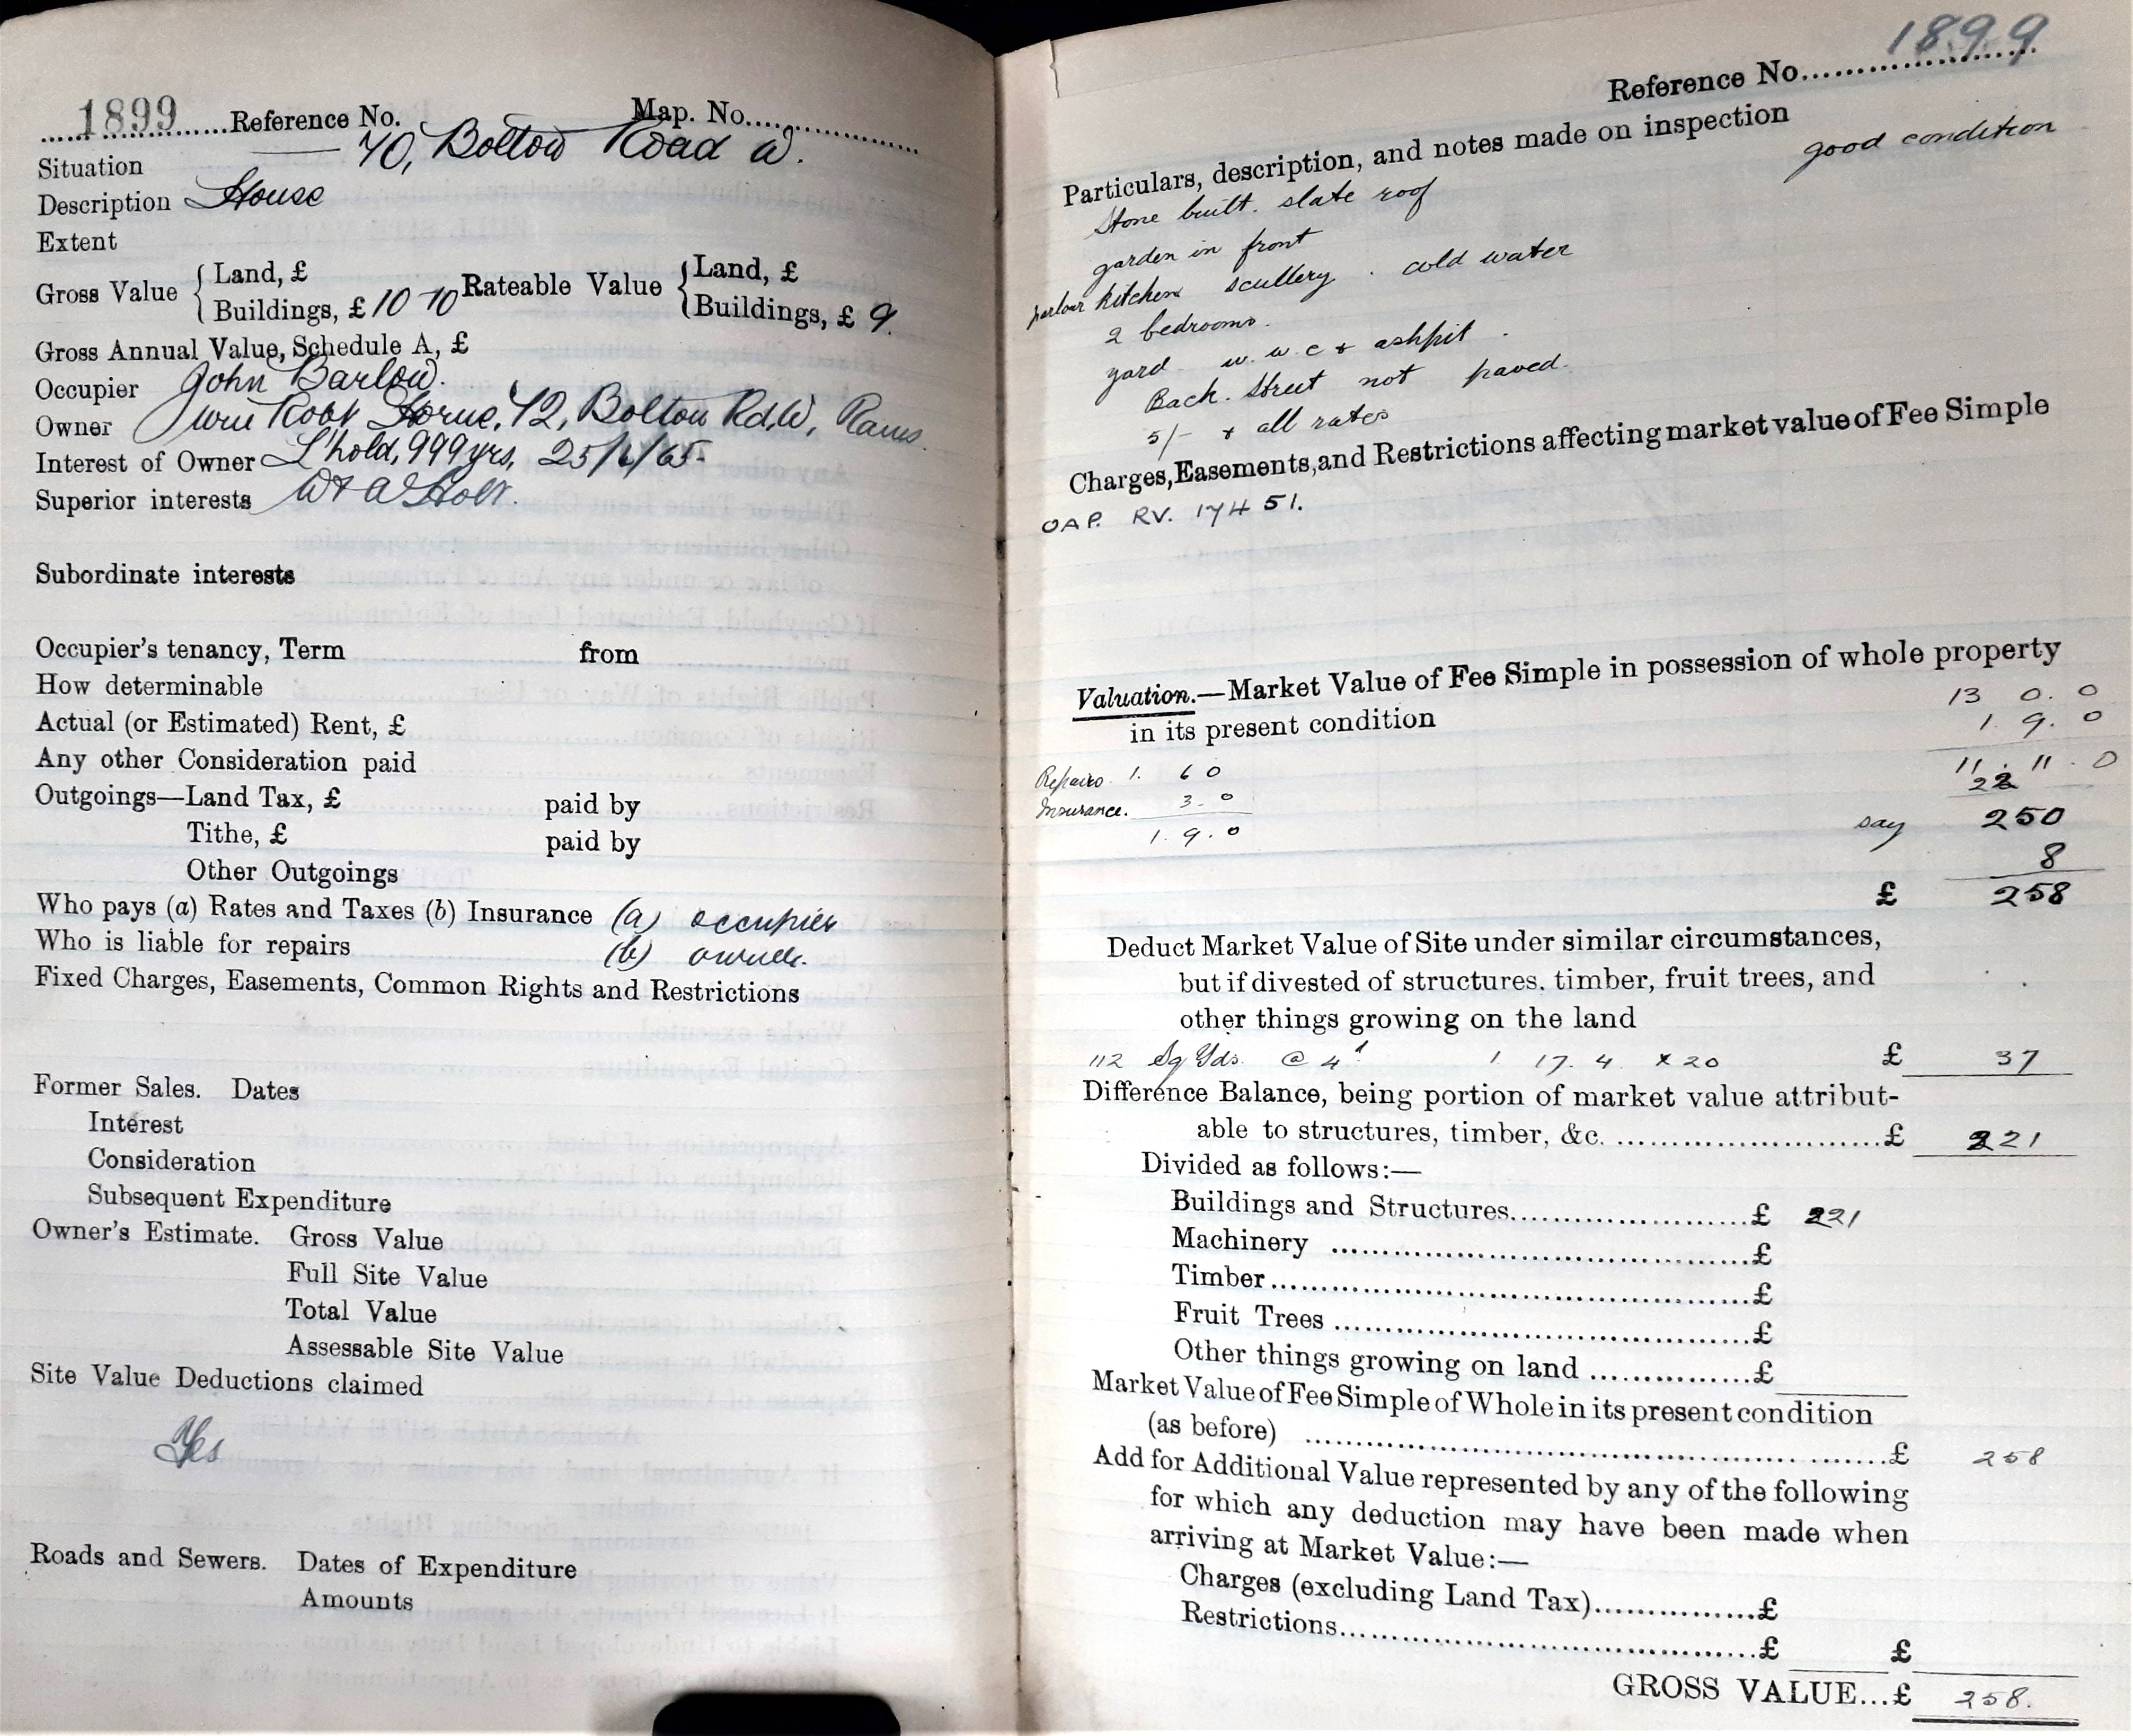 1899 Reference No. Map. No.
Situation 70, Bolton Road W.
Description House
Extent
Gross Value { Land, £ Rateable Value { Land, £
Buildings, £ 10 10 Buildings, £ 9.
Gross Annual Value, Schedule A, £
Occupier John Barlow.
Owner Robt Horne, 72, Bolton Rd, W, Rams.
Interest of Owner L'hold, 999 yrs, 25/ /65
Superior interests Holt.
Subordinate interests
Occupier's tenancy, Term from
How determinable
Actual (or Estimated) Rent, £
Any other Consideration paid
Outgoings—Land Tax, £ paid by
Tithe, £ paid by
Other Outgoings
Who pays (a) Rates and Taxes (b) Insurance (a) occupier
Who is liable for repairs (b) owner.
Fixed Charges, Easements, Common Rights and Restrictions
Former Sales. Dates
Interest
Consideration
Subsequent Expenditure
Owner's Estimate. Gross Value
Full Site Value
Total Value
Assessable Site Value
Site Value Deductions claimed
Yes
Roads and Sewers. Dates of Expenditure
Amounts
1899
Reference No.
Particulars, description, and notes made on inspection
good condition
Stone built. slate roof
garden in front
parlour kitchen scullery . cold water
2 bedrooms.
yard w.w.c & ashpit .
Back. Street not paved.
5/- & all rates
Charges, Easements, and Restrictions affecting market value of Fee Simple
OAP. RV. 17451.
Valuation.—Market Value of Fee Simple in possession of whole property
in its present condition
13 0. 0
1. 9. 0
Repairs 1. 6 0 11. 11. 0
Insurance. 3. 0 22
1. 9. 0 say 250
8
£ 258
Deduct Market Value of Site under similar circumstances,
but if divested of structures, timber, fruit trees, and
other things growing on the land
112 Sq Yds. @ 4d 1 17. 4 x 20 £ 37
Difference Balance, being portion of market value attribut-
able to structures, timber, &c. £ 221
Divided as follows:—
Buildings and Structures £ 221
Machinery £
Timber £
Fruit Trees £
Other things growing on land £
Market Value of Fee Simple of Whole in its present condition
(as before) £ 258
Add for Additional Value represented by any of the following
for which any deduction may have been made when
arriving at Market Value:—
Charges (excluding Land Tax) £
Restrictions £ £
GROSS VALUE...£ 258.